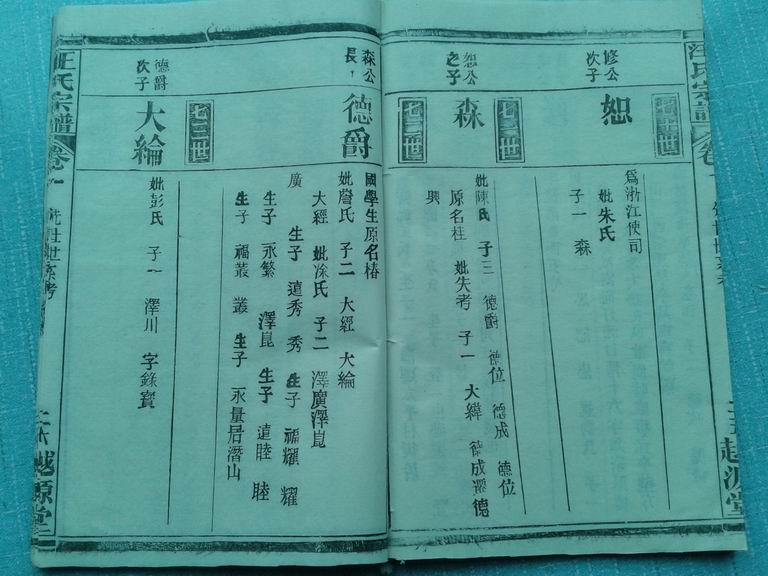 汪氏宗譜
卷一
越源堂
七十一世
修公次子
恕
為浙江使司
妣朱氏
子一 森
七十二世
恕公之子
森
妣陳氏 子三 德爵 德位 德成 德位
原名桂 妣失考 子一 大緯 德成 德
興
七十三世
森公長
德爵
國學生原名椿
妣詹氏 子二 大經 大綸
大經 妣凃氏 子二 澤廣澤崑
廣 生子 遠秀 秀 生子 福耀 耀
生子 永繁 澤崑 生子 遠睦 睦
生子 福叢 叢 生子 永量居潛山
德爵次子
大綸
妣彭氏 子一 澤川 字錦賓
汪氏宗譜
卷一
越源堂